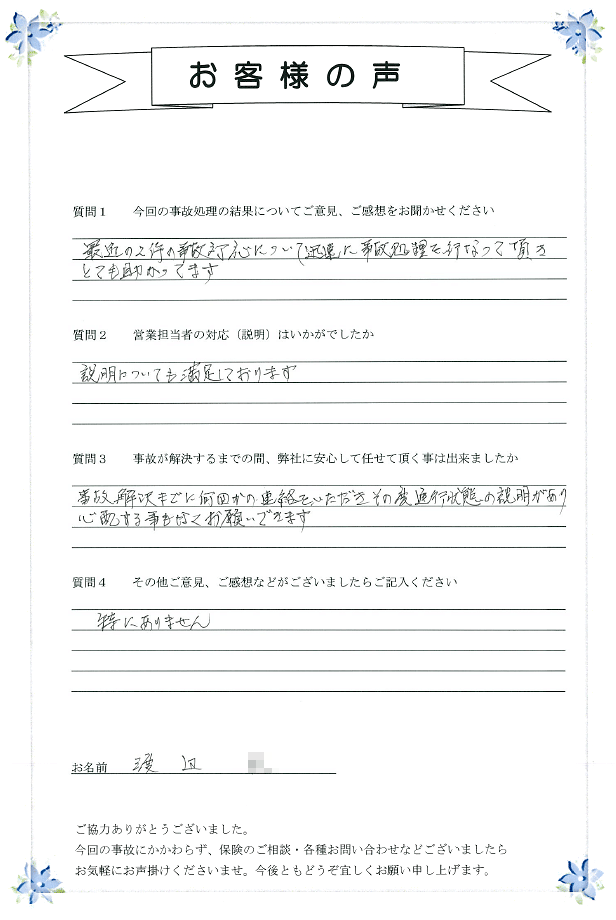 お客様の声
質問１　今回の事故処理の結果についてご意見、ご感想をお聞かせください
最近の2件の事故対応について迅速に事故処理を行なって頂き
とても助かってます
質問２　営業担当者の対応（説明）はいかがでしたか
説明についても満足しております
質問３　事故が解決するまでの間、弊社に安心して任せて頂く事は出来ましたか
事故解決までに何回かの連絡をいただきその度進行状態の説明があり
心配する事もなくお願いできます
質問４　その他ご意見、ご感想などがございましたらご記入ください
特にありません
お名前　渡辺
ご協力ありがとうございました。
今回の事故にかかわらず、保険のご相談・各種お問い合わせなどございましたら
お気軽にお声掛けくださいませ。今後ともどうぞ宜しくお願い申し上げます。